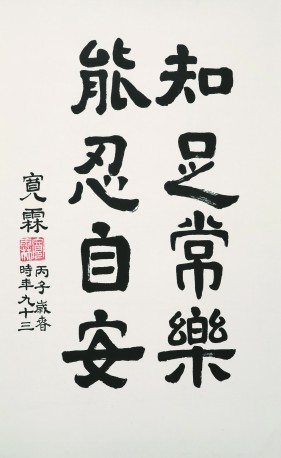 知足常樂
能忍自安
寬霖
丙子歲春
時年九十三